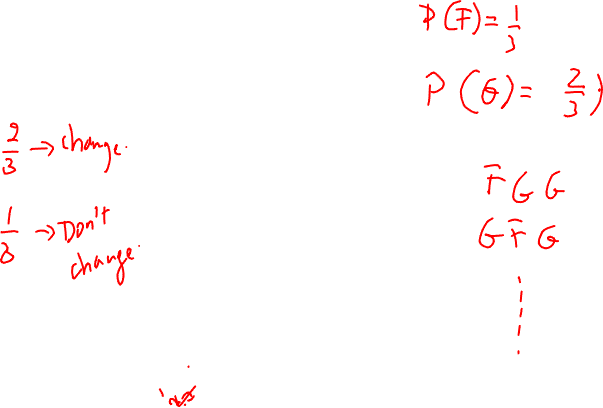 P(F) = 1/3
P(G) = 2/3)
2/3 → change.
1/3 → Don't
change.
F G G
G F G